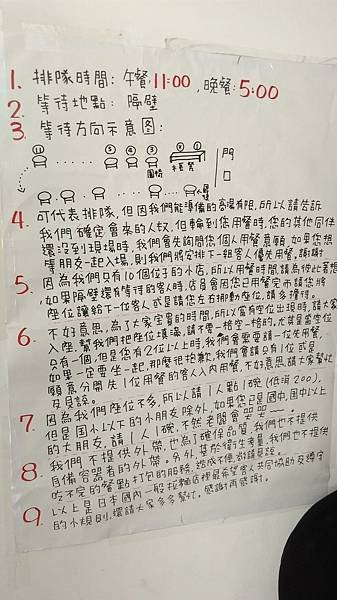 1. 排隊時間: 午餐, 11:00, 晚餐: 5:00
2. 等待地點: 隔壁
3. 等待方向示意图:
門口
4. 可代表排隊, 但因我們能準備的客湯有限, 所以請告訴
我們確定會來的人數, 但輪到您用餐時, 您的其他同伴
還沒到現場時, 我們會先詢問您個人用餐意願, 如果您想
等朋友一起入場, 則我們將安排下一組客人優先用餐, 謝謝!
5. 因為我們只有10個位子的小店, 所以用餐時間請為彼此著想
, 如果隔壁還有等待的客人時, 店員會用您已用餐完而請您將
座位讓給下一位客人或是請您左右挪動座位, 請多擔待。
6. 不好意思, 為了大家寶貴的時間, 所以當有空位出現時, 請大家
入座, 幫我們把座位填滿, 請不要一格空一格的, 尤其是當空位
只有一個, 但是您有2位以上時, 我們會需要請一位先用餐,
如果一定要坐一起, 那麼很抱歉, 我們會請只有1位或是
願意分開先1位用餐的客人入內用餐, 不好意思請大家幫忙
見諒。
7. 因為我們座位不多, 所以請1人點1碗(低消200),
但是國小以下的小朋友除外, 如果您是國中以上
的大朋友, 請1人1碗, 不然老闆會哭哭—。
8. 我們不提供外帶, 也為了確保品質, 我們也不提供
自備容器者的外帶。另外, 基於衛生考量, 我們也不提供
吃不完的餐點打包的服務, 造成不便, 敬請見諒。
9. 以上是日本國內一般拉麵店裡最希望客人共同協助及遵守
的小規則, 還請大家多多幫忙。感謝再感謝。